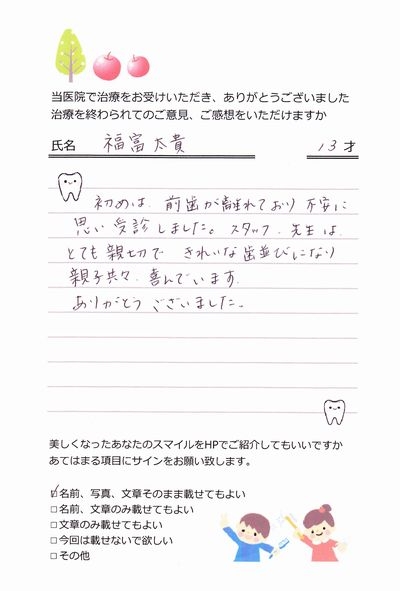 当医院で治療をお受けいただき、ありがとうございました
治療を終わられてのご意見、ご感想をいただけますか
氏名 福富太貴 13才
初めは、前歯が離れており不安に
思い受診しました。スタッフ、先生は、
とても親切で きれいな歯並びになり
親子共々、喜んでいます。
ありがとう ございました。
美しくなったあなたのスマイルをHPでご紹介してもいいですか
あてはまる項目にサインをお願い致します。
☑名前、写真、文章そのまま載せてもよい
□名前、文章のみ載せてもよい
□文章のみ載せてもよい
□今回は載せないで欲しい
□その他